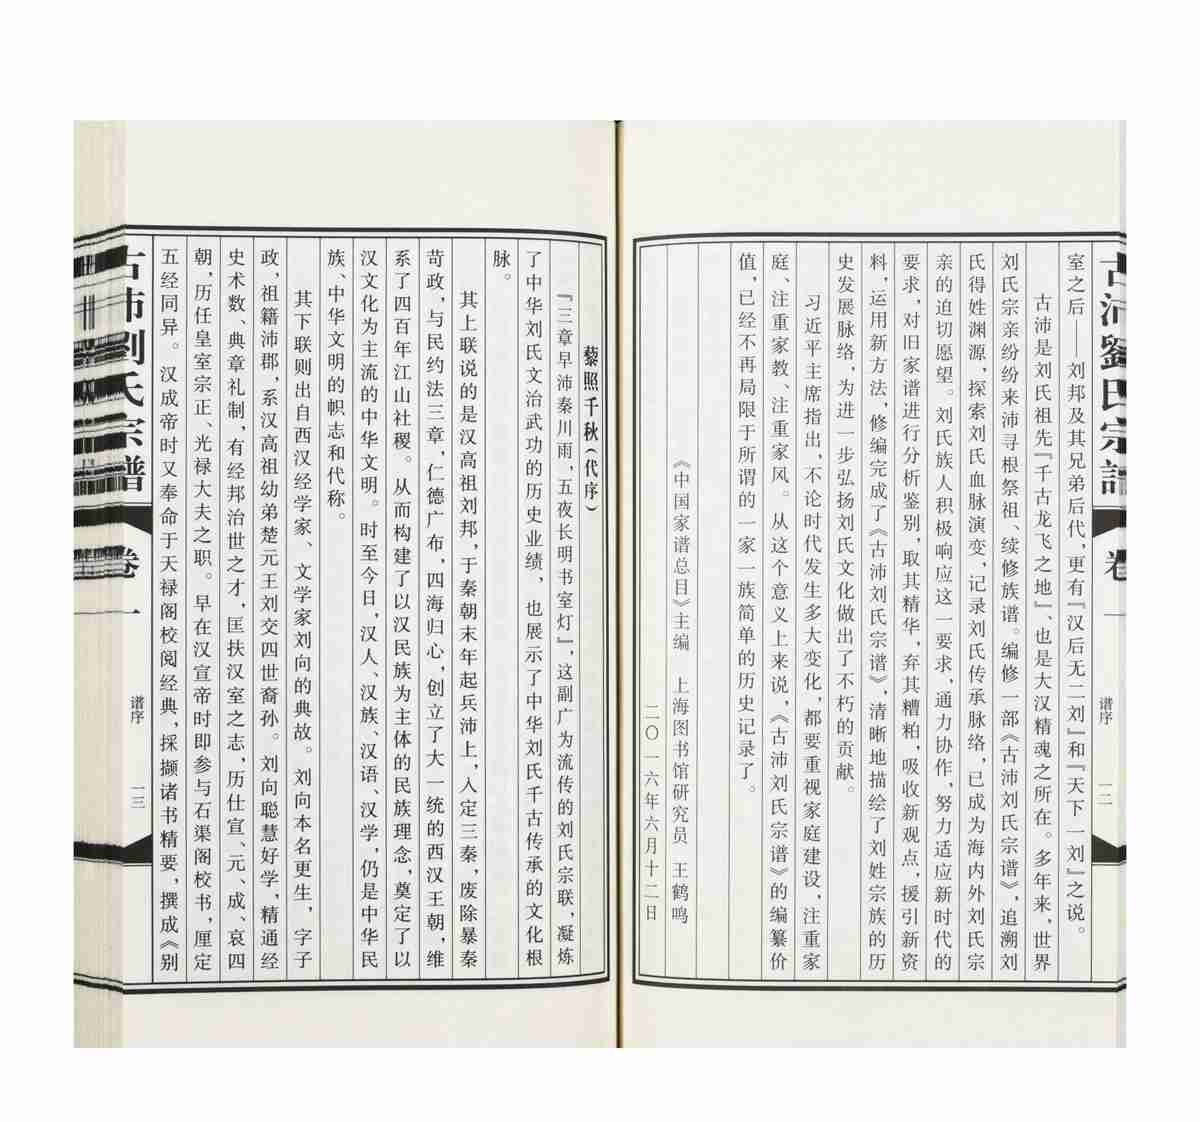 古沛劉氏宗譜
卷一
谱序
一二
室之后——刘邦及其兄弟后代，更有『汉后无二刘』和『天下一刘』之说。
古沛是刘氏祖先『千古龙飞之地』、也是大汉精魂之所在。多年来，世界
刘氏宗亲纷纷来沛寻根祭祖、续修族谱。编修一部《古沛刘氏宗谱》，追溯刘
氏得姓渊源，探索刘氏血脉演变，记录刘氏传承脉络，已成为海内外刘氏宗
亲的迫切愿望。刘氏族人积极响应这一要求，通力协作，努力适应新时代的
要求，对旧家谱进行分析鉴别，取其精华，弃其糟粕，吸收新观点，援引新资
料，运用新方法，修编完成了《古沛刘氏宗谱》，清晰地描绘了刘姓宗族的历
史发展脉络，为进一步弘扬刘氏文化做出了不朽的贡献。
习近平主席指出，不论时代发生多大变化，都要重视家庭建设，注重家
庭、注重家教、注重家风。从这个意义上来说，《古沛刘氏宗谱》的编纂价
值，已经不再局限于所谓的一家一族简单的历史记录了。
《中国家谱总目》主编　上海图书馆研究员　王鹤鸣
二〇一六年六月十二日
藜照千秋（代序）
『三章早沛秦川雨，五夜长明书室灯』，这副广为流传的刘氏宗联，凝炼
了中华刘氏文治武功的历史业绩，也展示了中华刘氏千古传承的文化根
脉。
其上联说的是汉高祖刘邦，于秦朝末年起兵沛上，人定三秦，废除暴秦
苛政，与民约法三章，仁德广布，四海归心，创立了大一统的西汉王朝，维
系了四百年江山社稷。从而构建了以汉民族为主体的民族理念，奠定了以
汉文化为主流的中华文明。时至今日，汉人、汉族、汉语、汉学，仍是中华民
族、中华文明的帜志和代称。
其下联则出自西汉经学家、文学家刘向的典故。刘向本名更生，字子
政，祖籍沛郡，系汉高祖幼弟楚元王刘交四世裔孙。刘向聪慧好学，精通经
史术数、典章礼制，有经邦治世之才，匡扶汉室之志，历仕宣、元、成、哀四
朝，历任皇室宗正、光禄大夫之职。早在汉宣帝时即参与石渠阁校书，厘定
五经同异。汉成帝时又奉命于天禄阁校阅经典，採撷诸书精要，撰成《别
古沛劉氏宗譜
卷一
谱序
一三